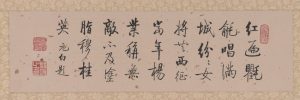 紅遍氍
毹唱滿
城紛紛女
將西征
當年楊
業稱無
敵不及塗
脂穆桂
英 元白題